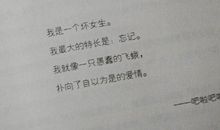 我是一个坏女生。
我最大的特长是：忘记。
我就像一只愚蠢的飞蛾，
扑向了自以为是的爱情。
——吧啦吧